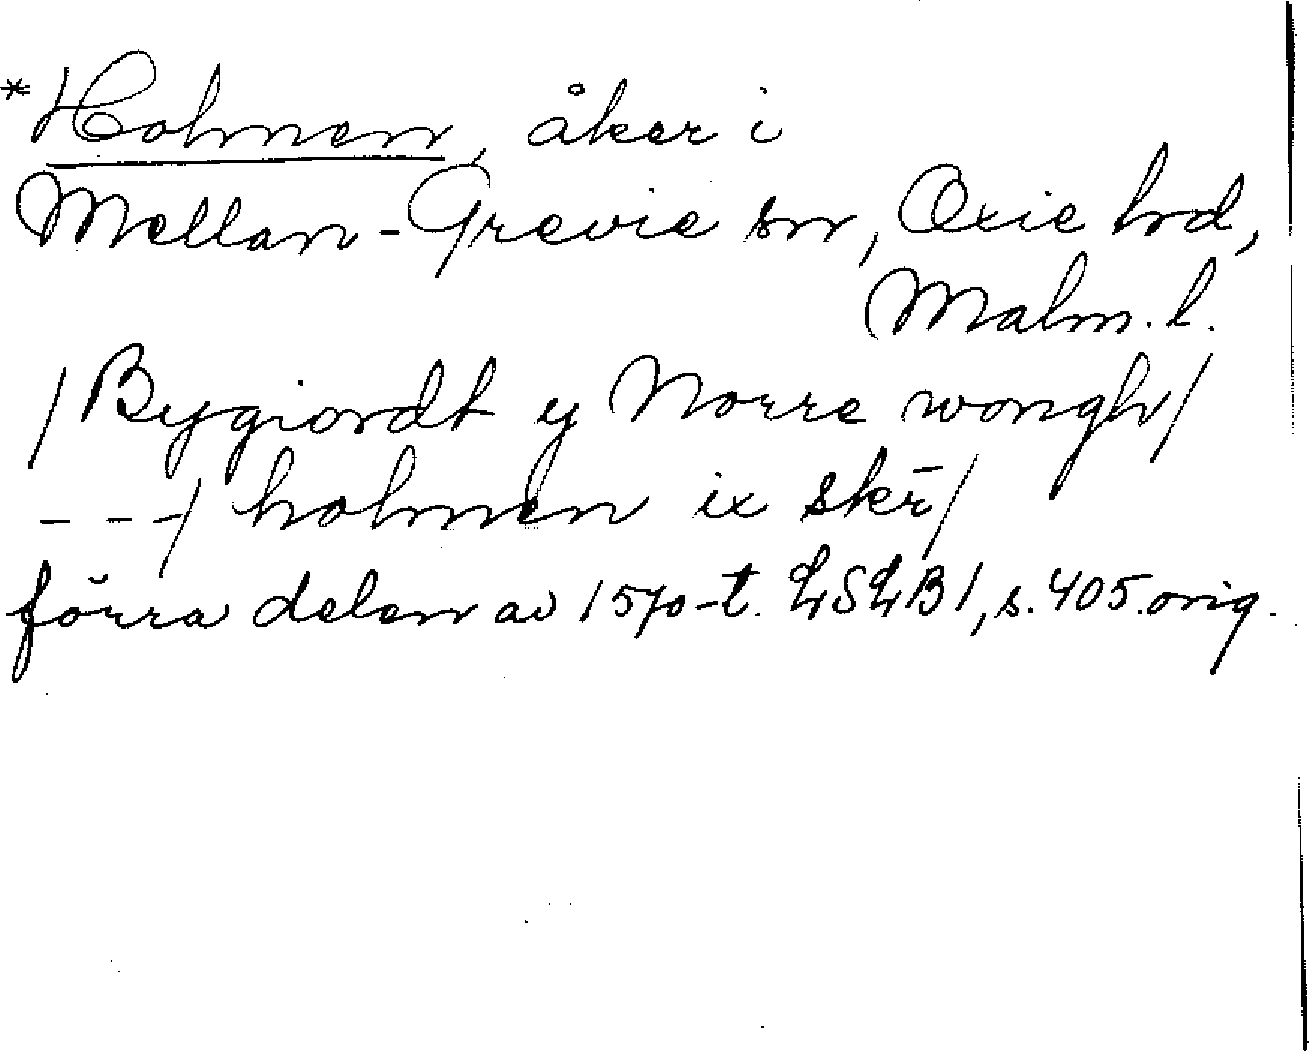 *Holmen, åker i
Mellan-Grevie sn, Oxie hd,
Malm. l.
/Bygiordt y Norre wongh/
---/ holmen ix skr̄/
förra delen av 1570-t. LSLB1, s. 405. orig.